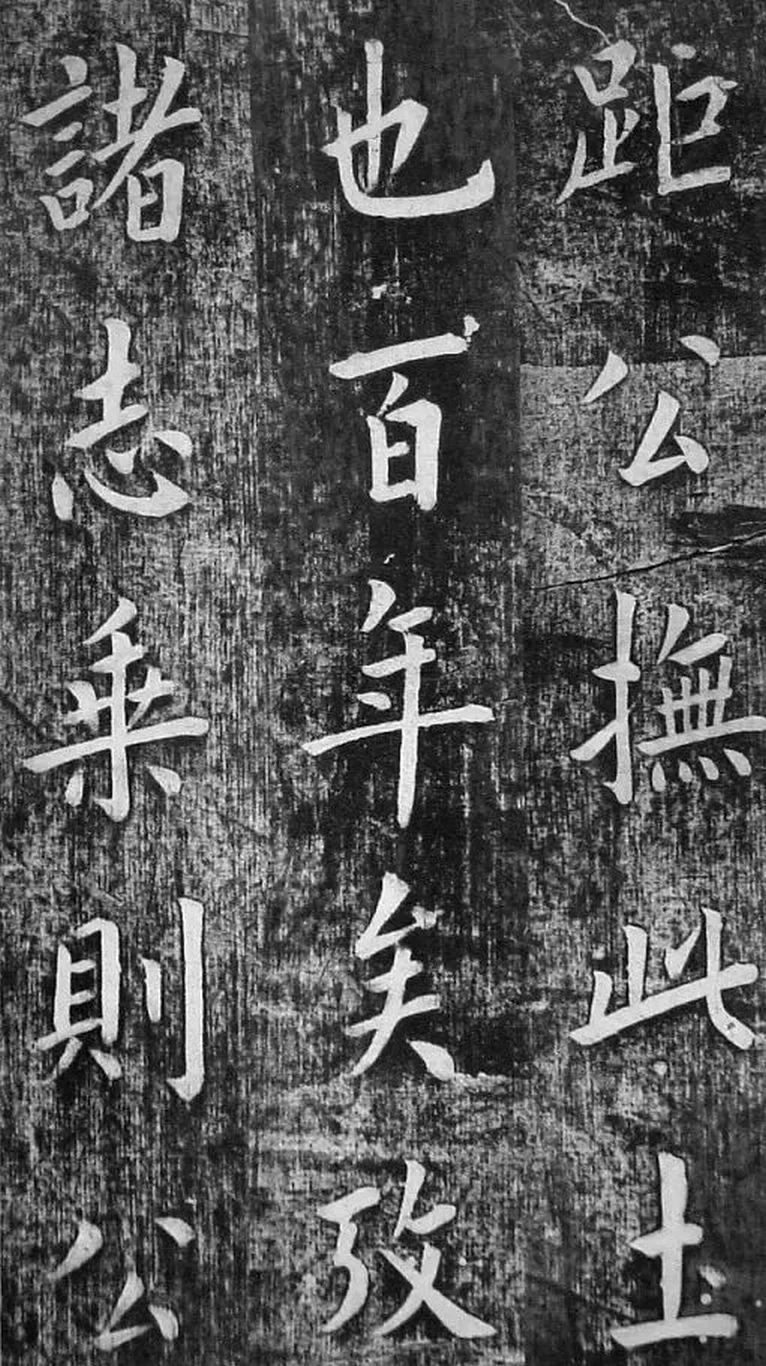 距公撫此土
也百年矣攷
諸志乗則公